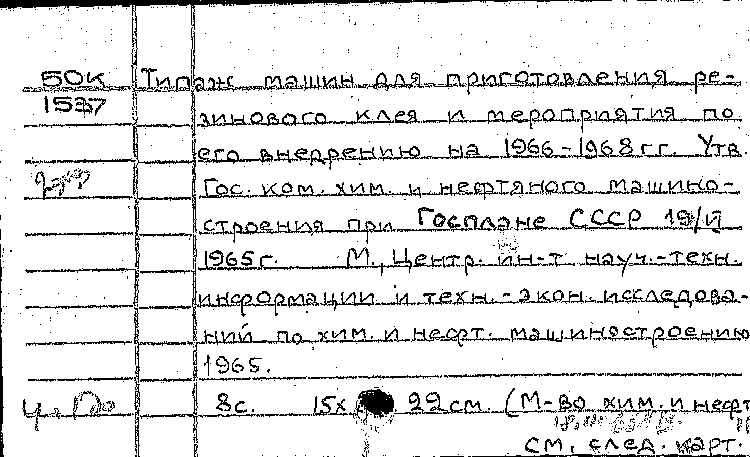 50К Типаж машин для приготовления ре-
1537 зинового клея и мероприятия по
его внедрению на 1966-1968 гг. Утв.
Гос. ком. хим. и нефтяного машино-
строения при Госплане СССР 19/
1965 г. М., Центр. ин-т науч.-техн.
информации и техн.-экон. исследова-
ний по хим. и нефт. машиностроению
1965.
8с. 15х 22см. (М-во хим. и нефт
см. след. карт.